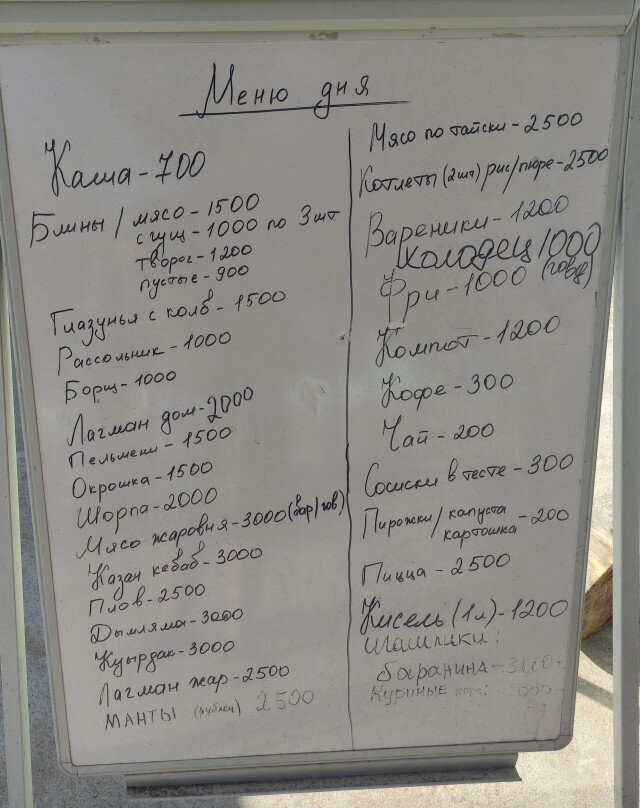 Меню дня
Каша - 700
Блины / мясо - 1500
сгущ - 1000 по 3шт
творог - 1200
пустые - 900
Глазунья с колб - 1500
Рассольник - 1000
Борщ - 1000
Лагман дом - 2000
Пельмени - 1500
Окрошка - 1500
Шорпа - 2000
Мясо жаровня - 3000 (бар/гов)
Казан кебаб - 3000
Плов - 2500
Дымляма - 3000
Куырдак - 3000
Лагман жар - 2500
МАНТЫ (рублен) 2500
Мясо по тайски - 2500
Котлеты (2шт) рис/пюре - 2500
Вареники - 1200
Холодец 1000
(говяд)
Фри - 1000
Компот - 1200
Кофе - 300
Чай - 200
Сосиски в тесте - 300
Пирожки / капуста
картошка - 200
Пицца - 2500
Кисель (1л) - 1200
Шашлики:
баранина - 3000 т.
Куриные